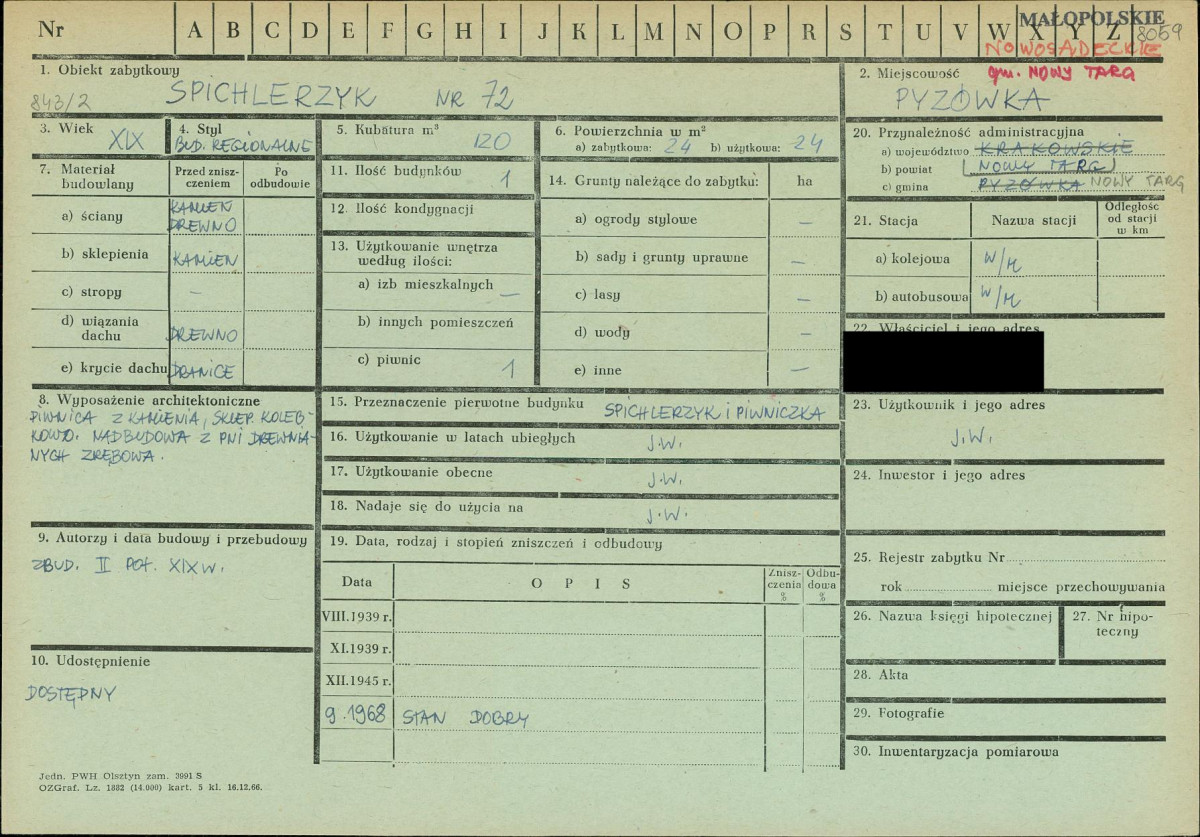 Nr A B C D E F G H I J K L M N O P R S T U V W X Y Z
MAŁOPOLSKIE
8059
NOWOSĄDECKIE
gm. NOWY TARG
1. Obiekt zabytkowy
843/2 SPICHLERZYK NR 72
2. Miejscowość
PYZÓWKA
3. Wiek XIX
4. Styl
BUD. REGIONALNE
5. Kubatura m³ 120
6. Powierzchnia w m²
a) zabytkowa: 24 b) użytkowa: 24
7. Materiał budowlany
Przed zniszczeniem
Po odbudowie
a) ściany KAMIEŃ DREWNO
b) sklepienia KAMIEŃ
c) stropy –
d) wiązania dachu DREWNO
e) krycie dachu DRANICE
8. Wyposażenie architektoniczne
PIWNICA Z KAMIENIA, SKLEP. KOLEB-
KOWO. NADBUDOWA Z PNI DREWNIA-
NYCH ZRĘBOWA.
9. Autorzy i data budowy i przebudowy
ZBUD. II POŁ. XIX W.
10. Udostępnienie
DOSTĘPNY
11. Ilość budynków 1
12. Ilość kondygnacji
13. Użytkowanie wnętrza
według ilości:
a) izb mieszkalnych –
b) innych pomieszczeń
c) piwnic 1
14. Grunty należące do zabytku: ha
a) ogrody stylowe –
b) sady i grunty uprawne –
c) lasy –
d) wody –
e) inne –
15. Przeznaczenie pierwotne budynku SPICHLERZYK i PIWNICZKA
16. Użytkowanie w latach ubiegłych J.W.
17. Użytkowanie obecne J.W.
18. Nadaje się do użycia na J.W.
19. Data, rodzaj i stopień zniszczeń i odbudowy
Data OPIS Zniszczenia % Odbudowa %
VIII.1939 r.
XI.1939 r.
XII.1945 r.
9.1968 STAN DOBRY
20. Przynależność administracyjna
a) województwo KRAKOWSKIE
b) powiat NOWY TARG
c) gmina PYZÓWKA NOWY TARG
21. Stacja Nazwa stacji Odległość od stacji w km
a) kolejowa W/M
b) autobusowa W/M
22. Właściciel i jego adres
23. Użytkownik i jego adres
J.W.
24. Inwestor i jego adres
25. Rejestr zabytku Nr
rok miejsce przechowywania
26. Nazwa księgi hipotecznej
27. Nr hipo-
teczny
28. Akta
29. Fotografie
30. Inwentaryzacja pomiarowa
Jedn. PWH Olsztyn zam. 3991 S
OZGraf. Lz. 1882 (14.000) kart. 5 kl. 16.12.66.